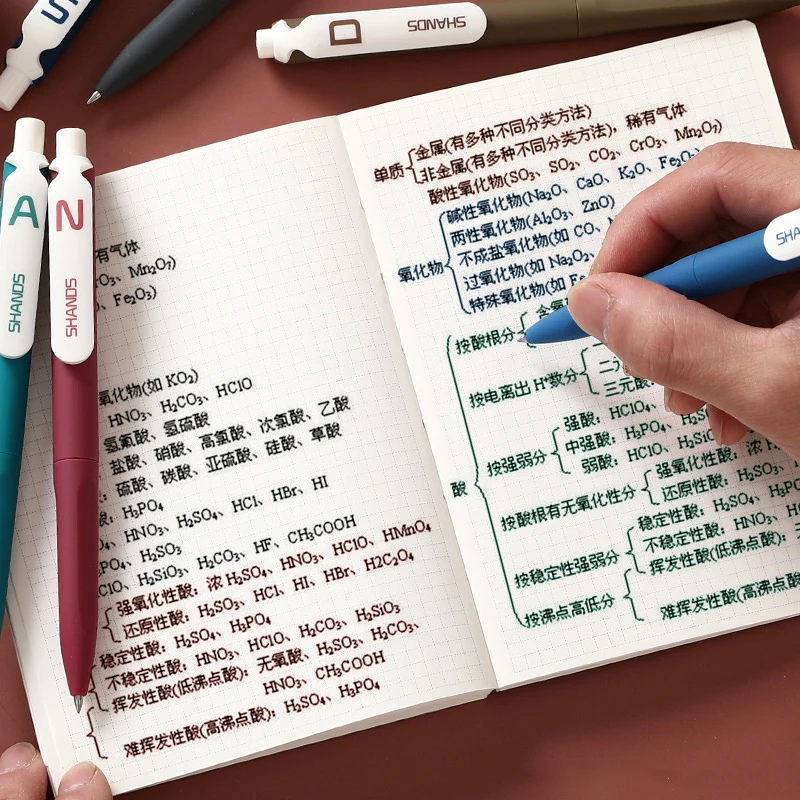 S
SHANDS
D
A
SHANDS
N
SHANDS
SHA
有气体
rO₃、Mn₂O₇)
、Fe₂O₃)
氧化物(如 KO₂)
HNO₃、H₂CO₃、HClO
氢氟酸、氢硫酸
盐酸、硝酸、高氯酸、次氯酸、乙酸
:硫酸、碳酸、亚硫酸、硅酸、草酸
酸:H₃PO₄
、HNO₃、H₂SO₄、HCl、HBr、HI
PO₄、H₂SO₃
ClO、H₂SiO₃、H₂CO₃、HF、CH₃COOH
强氧化性酸:浓 H₂SO₄、HNO₃、HClO、HMnO₄
还原性酸:H₂SO₃、HCl、HI、HBr、H2C₂O₄
稳定性酸:H₂SO₄、H₃PO₄
不稳定性酸:HNO₃、HClO、H₂CO₃、H₂SiO₃
挥发性酸(低沸点酸):无氧酸、H₂SO₃、H₂CO₃、
HNO₃、CH₃COOH
难挥发性酸(高沸点酸):H₂SO₄、H₃PO₄
单质
金属(有多种不同分类方法)
非金属(有多种不同分类方法),稀有气体
氧化物
酸性氧化物(SO₃、SO₂、CO₂、CrO₃、Mn₂O₇)
碱性氧化物(Na₂O、CaO、K₂O、Fe₂O₃)
两性氧化物(Al₂O₃、ZnO)
不成盐氧化物(如 CO、
过氧化物(如 Na₂O₂、
特殊氧化物(如 Fe
酸
按酸根分
含氧
按电离出 H⁺数分
二元
三元酸:
按强弱分
强酸:HClO₄、
中强酸:H₃PO₄、H₂SO
弱酸:HClO、H₂SiO
按酸根有无氧化性分
强氧化性酸:浓 H
还原性酸:H₂SO₃、H
按稳定性强弱分
稳定性酸:H₂SO₄、H₃P
不稳定性酸:HNO₃、H
按沸点高低分
挥发性酸(低沸点酸):
难挥发性酸(高沸点酸